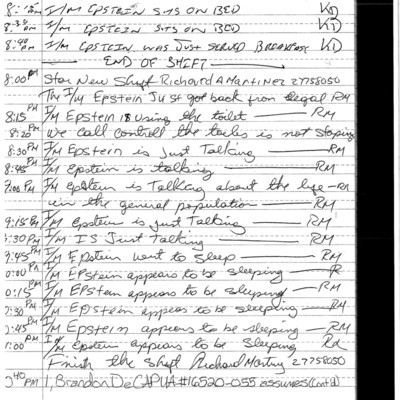 8:15 AM I/M EPSTEIN SITS ON BED KD
8:30 AM I/M EPSTEIN SITS ON BED KD
8:40 AM I/M EPSTEIN WAS JUST SERVED BREAKFAST KD
END OF SHIFT
8:00 PM Star New Shift Richard A Martinez 27758050
The I/M Epstein Just got back from legal RM
8:15 PM I/M Epstein is using the toilet RM
8:20 PM we call controll the is not
8:30 PM I/M Epstein is just Talking RM
8:45 PM I/M Epstein is talking RM
9:00 PM I/M Epstein is Talking about the life RM
in the general population RM
9:15 PM I/M Epstein is just Talking RM
9:30 PM I/M IS Just talking RM
9:45 PM I/M Epstein went to sleep RM
0:00 PM I/M Epstein appears to be sleeping R
0:15 PM I/M Epstein appears to be sleeping RM
:30 PM I/M Epstein appears to be sleeping RM
:45 PM I/M Epstein appears to be sleeping RM
1:00 PM I/M Epstein appears to be sleeping
Finish the Shift Richard 27758050
:40 PM I, Brandon DeCAPUA #16520-055 assumes (Cont'd)